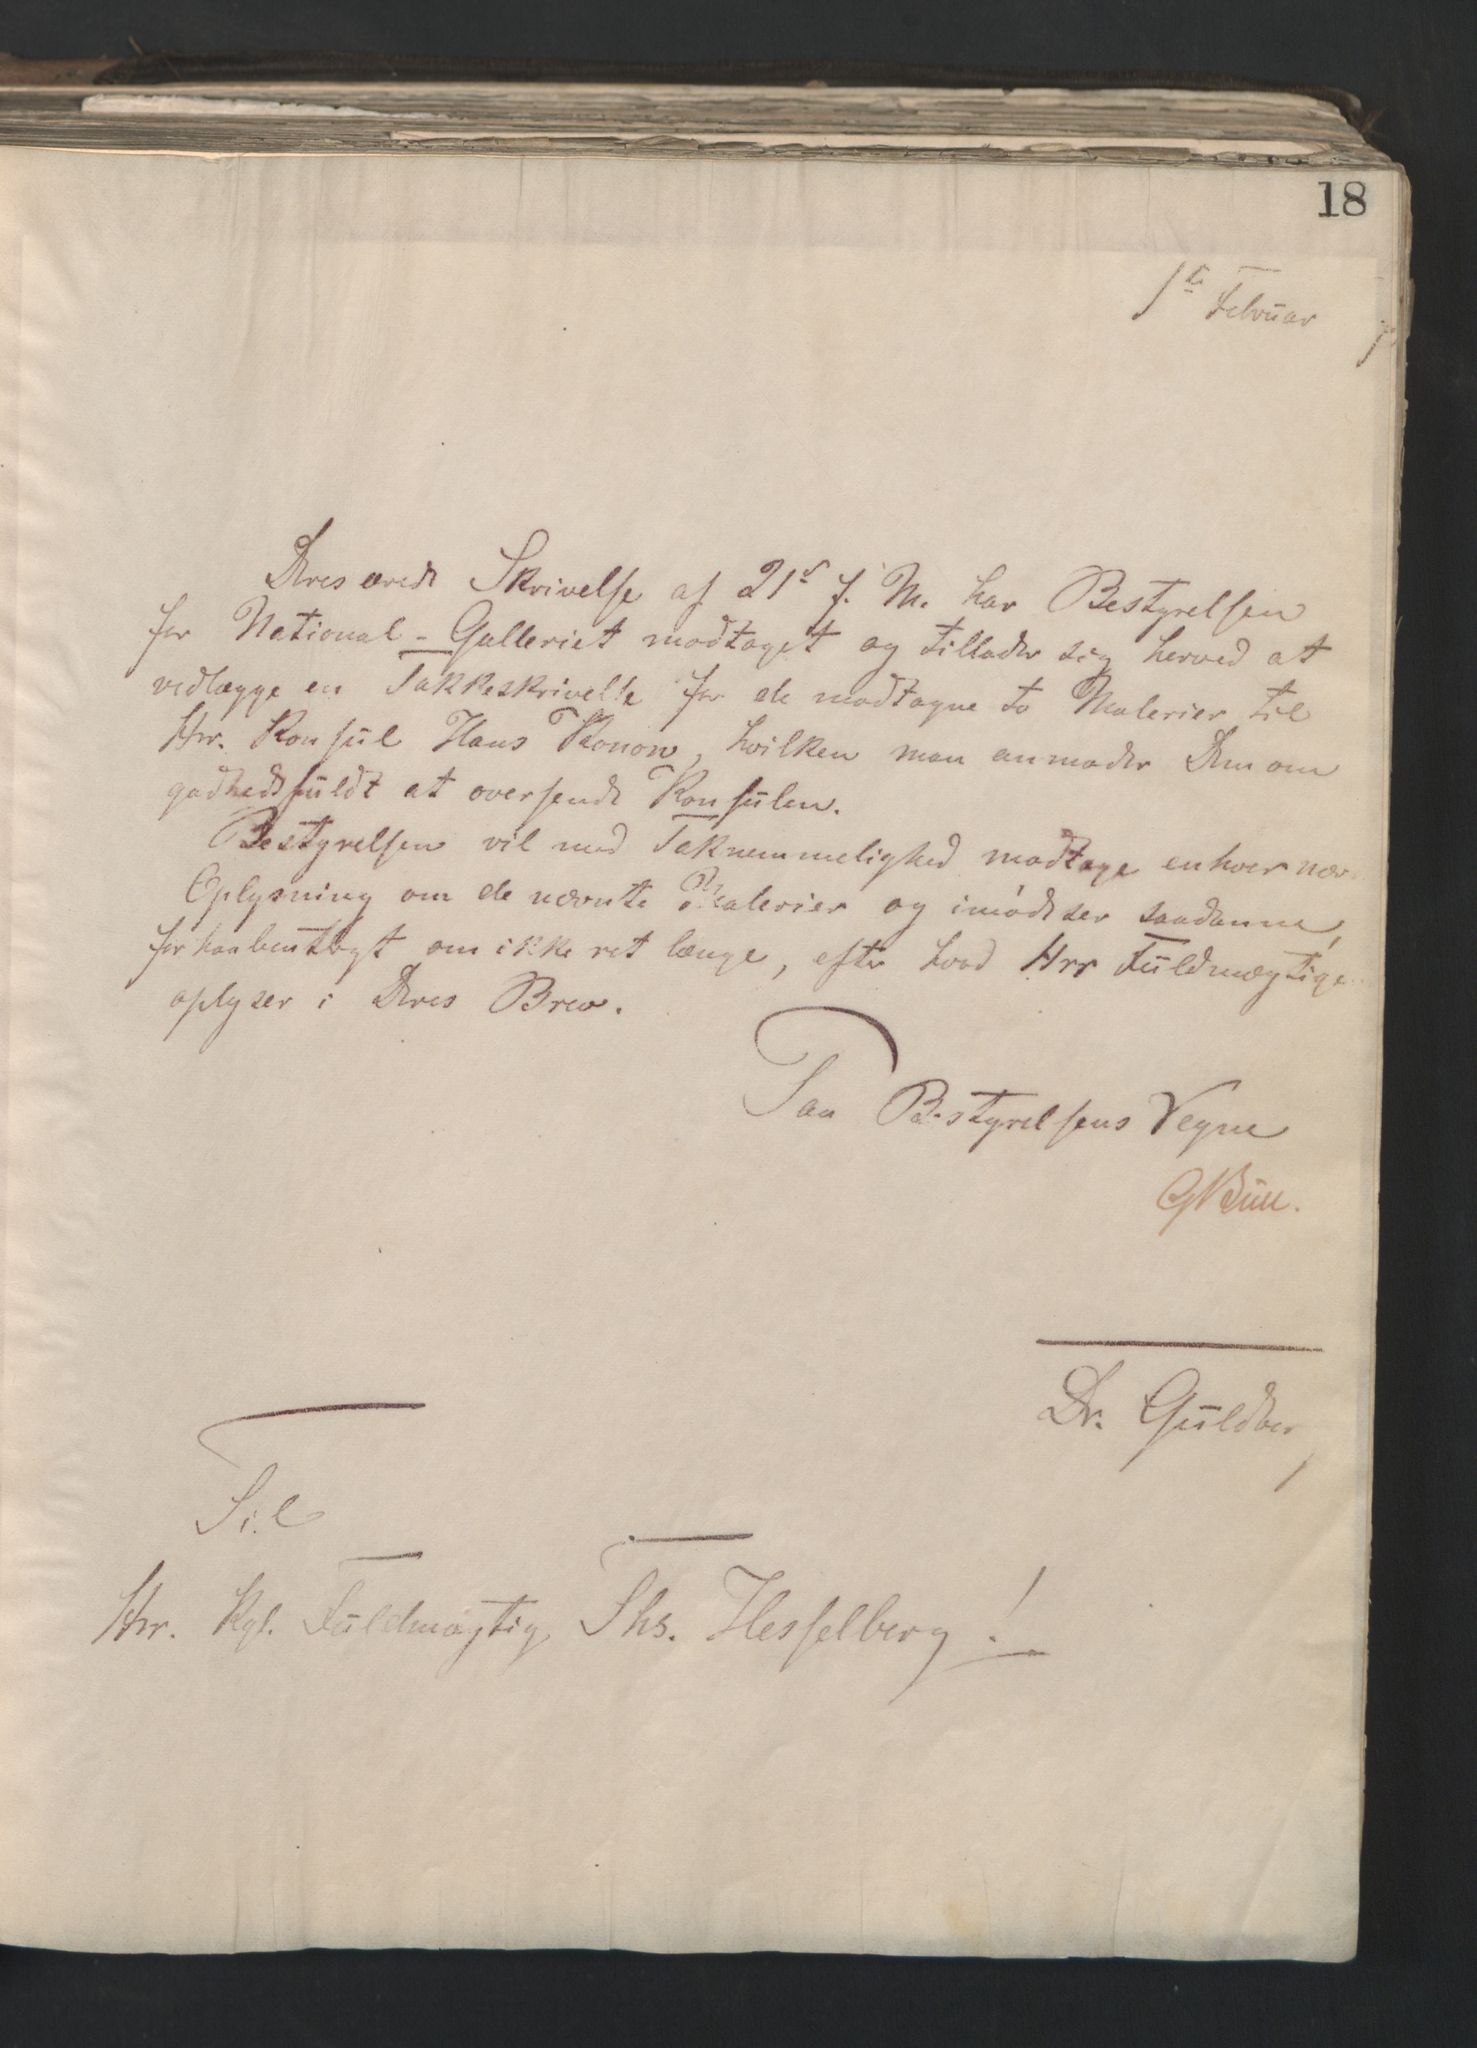 18
1ste Februar
Deres ærede Skrivelse af 21s f. M. har Bestyrelsen
for National-Galleriet modtaget og tillader sig herved at
vedlægge en Takkeskrivelse for de modtagne to Malerier til
Hrr. Konsul Hans, hvilken man anmoder Dem om
godhedsfuldt at oversende Konsulen.
Bestyrelsen vil med Taknemmelighed modtage enhver nær
Oplysning om de nævnte Malerier og imødeser saadanne,
om ikke ret længe, efter hvad Hrr Fuldmægtige
oplyser i Deres Brev.
Paa Bestyrelsens Vegne
GBull.
Dr. Guldber
Til
Hrr. Kgl. Fuldmægtig Ths. Hesselberg!